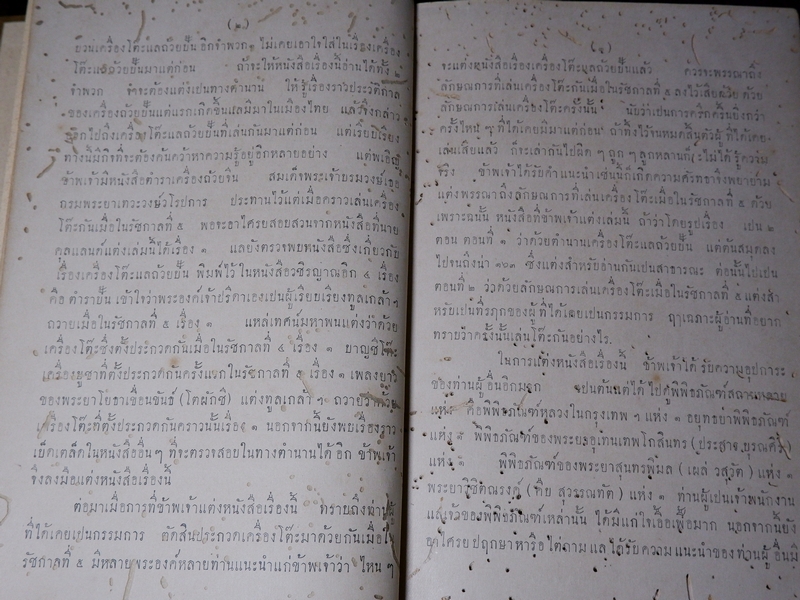 (๓)
ยั่วนเครื่องโต๊ะแลถ้วยปั้น อีกจำพวก ๑ ไม่เคยเอาใจใส่ในเรื่องเครื่อง
โต๊ะแลถ้วยปั้นมาแต่ก่อน ถ้าจะให้หนังสือเรื่องนี้อ่านได้ทั้ง ๒
จำพวก จำจะต้องแต่งเป็นทางตำนาน ให้รู้เรื่องราวประวัติกาล
ของเครื่องถ้วยปั้นแต่แรกเกิดขึ้นแลมีมาในเมืองไทย แล้วจึงกล่าว
ต่อไปถึงเครื่องโต๊ะแลถ้วยปั้นที่เล่นกันมาแต่ก่อน แต่เรียบเรียง
ทางนี้มีกิจที่จะต้องค้นคว้าหาความรู้อยู่อีกหลายอย่าง แต่พเอิญ
ข้าพเจ้ามีหนังสือตำราเครื่องถ้วยจีน สมเด็จพระเจ้าบรมวงษ์เธอ
กรมพระยาเทวะวงษ์วโรปการ ประทานไว้แต่เมื่อคราวเล่นเครื่อง
โต๊ะกันเมื่อในรัชกาลที่ ๕ พอจะอาไศรยสอบสวนจากหนังสือที่นาย
คลแลนท์แต่งเล่มนี้ได้เรื่อง ๑ แลยังตรวจพบหนังสือซึ่งเกี่ยวกับ
เรื่องเครื่องโต๊ะแลถ้วยปั้น พิมพ์ไว้ในหนังสือวชิรญาณอีก ๔ เรื่อง
คือ ตำราปั้น เข้าใจว่าพระองค์เจ้าปรีดาเองเป็นผู้เรียบเรียงทูลเกล้าฯ
ถวายเมื่อในรัชกาลที่ ๕ เรื่อง ๑ แหล่เทศน์มหาพนแต่งว่าด้วย
เครื่องโต๊ะซึ่งตั้งประกวดกันเมื่อในรัชกาลที่ ๔ เรื่อง ๑ บาญชีโต๊ะ
เครื่องบูชาที่ตั้งประกวดกันครั้งแรกในรัชกาลที่ ๕ เรื่อง ๑ เพลงยาว
ของพระยาโชฎาเชื่อนขันธ์ (โตผักชี) แต่งทูลเกล้า ฯ ถวายว่าด้วย
เครื่องโต๊ะที่ตั้งประกวดกันคราวนั้นเรื่อง ๑ นอกจากนี้ยังพบเรื่องราว
เบ็ดเตล็ดในหนังสืออื่นๆ ที่จะตรวจสอบในทางตำนานได้อีก ข้าพเจ้า
จึงลงมือแต่งหนังสือเรื่องนี้
ต่อมาเมื่อการที่ข้าพเจ้าแต่งหนังสือเรื่องนี้ ทราบถึงท่านผู้
ที่ได้เคยเป็นกรรมการ ตัดสินประกวดเครื่องโต๊ะมาด้วยกันเมื่อใน
รัชกาลที่ ๕ มีหลายพระองค์หลายท่านแนะนำแก่ข้าพเจ้าว่า ไหน ๆ
(๔)
จะแต่งหนังสือเรื่องเครื่องโต๊ะแลถ้วยปั้นแล้ว ควรจะพรรณาถึง
ลักษณการที่เล่นเครื่องโต๊ะกันเมื่อในรัชกาลที่ ๕ ลงไว้เสียด้วย ด้วย
ลักษณการเล่นเครื่องโต๊ะครั้งนั้น นับว่าเป็นการครึกครื้นยิ่งกว่า
ครั้งไหน ๆ ที่ได้เคยมีมาแต่ก่อน ถ้าทิ้งไว้จนหมดสิ้นตัวผู้ที่ได้เคย
เล่นเสียแล้ว ก็จะเล่ากันไปผิด ๆ ถูก ๆ ลูกหลานก็จะไม่ได้รู้ความ
จริง ข้าพเจ้าได้รับคำแนะนำเช่นนี้ก็เกิดความศรัทธาจึงพยายาม
แต่งพรรณาถึงลักษณการที่เล่นเครื่องโต๊ะเมื่อในรัชกาลที่ ๕ ด้วย
เพราะฉนั้น หนังสือที่ข้าพเจ้าแต่งเล่มนี้ ถ้าว่าโดยรูปเรื่อง เป็น ๒
ตอน ตอนที่ ๑ ว่าด้วยตำนานเครื่องโต๊ะแลถ้วยปั้น แต่ต้นสมุดลง
ไปจนถึงน่า ๑๐๓ ซึ่งแต่งสำหรับอ่านกันเป็นสาธารณะ ต่อนั้นไปเป็น
ตอนที่ ๒ ว่าด้วยลักษณการเล่นเครื่องโต๊ะเมื่อในรัชกาลที่ ๕ แต่งสำ
หรับเป็นที่รฦกของผู้ที่ได้เคยเป็นกรรมการ ฤาเฉภาะผู้อ่านที่อยาก
ทราบว่าครั้งนั้นเล่นโต๊ะกันอย่างไร.
ในการแต่งหนังสือเรื่องนี้ ข้าพเจ้าได้รับความอุปการะ
ของท่านผู้อื่นอีกมาก เป็นต้นแต่ได้ไปดูพิพิธภัณฑ์สถานหลาย
แห่ง คือพิพิธภัณฑ์หลวงในกรุงเทพ ฯ แห่ง ๑ อยุทธยาพิพิธภัณฑ์
แห่ง ๑ พิพิธภัณฑ์ของพระยาอุเทนเทพโกสินทร (ประสาร บุรณศิริ)
แห่ง ๑ พิพิธภัณฑ์ของพระยาสุนทรพิมล (เผล่ วสุวัต) แห่ง ๑
พระยาวิชิตณรงค์ (ทิ้ย สุวรรณทัต) แห่ง ๑ ท่านผู้เป็นเจ้าพนักงาน
แลเจ้าของพิพิธภัณฑ์เหล่านั้น ได้มีแก่ใจเอื้อเฟื้อมาก นอกจากนี้ยัง
อาไศรยปฤกษาหารือไต่ถามแลได้รับความแนะนำของท่านผู้อื่นมี